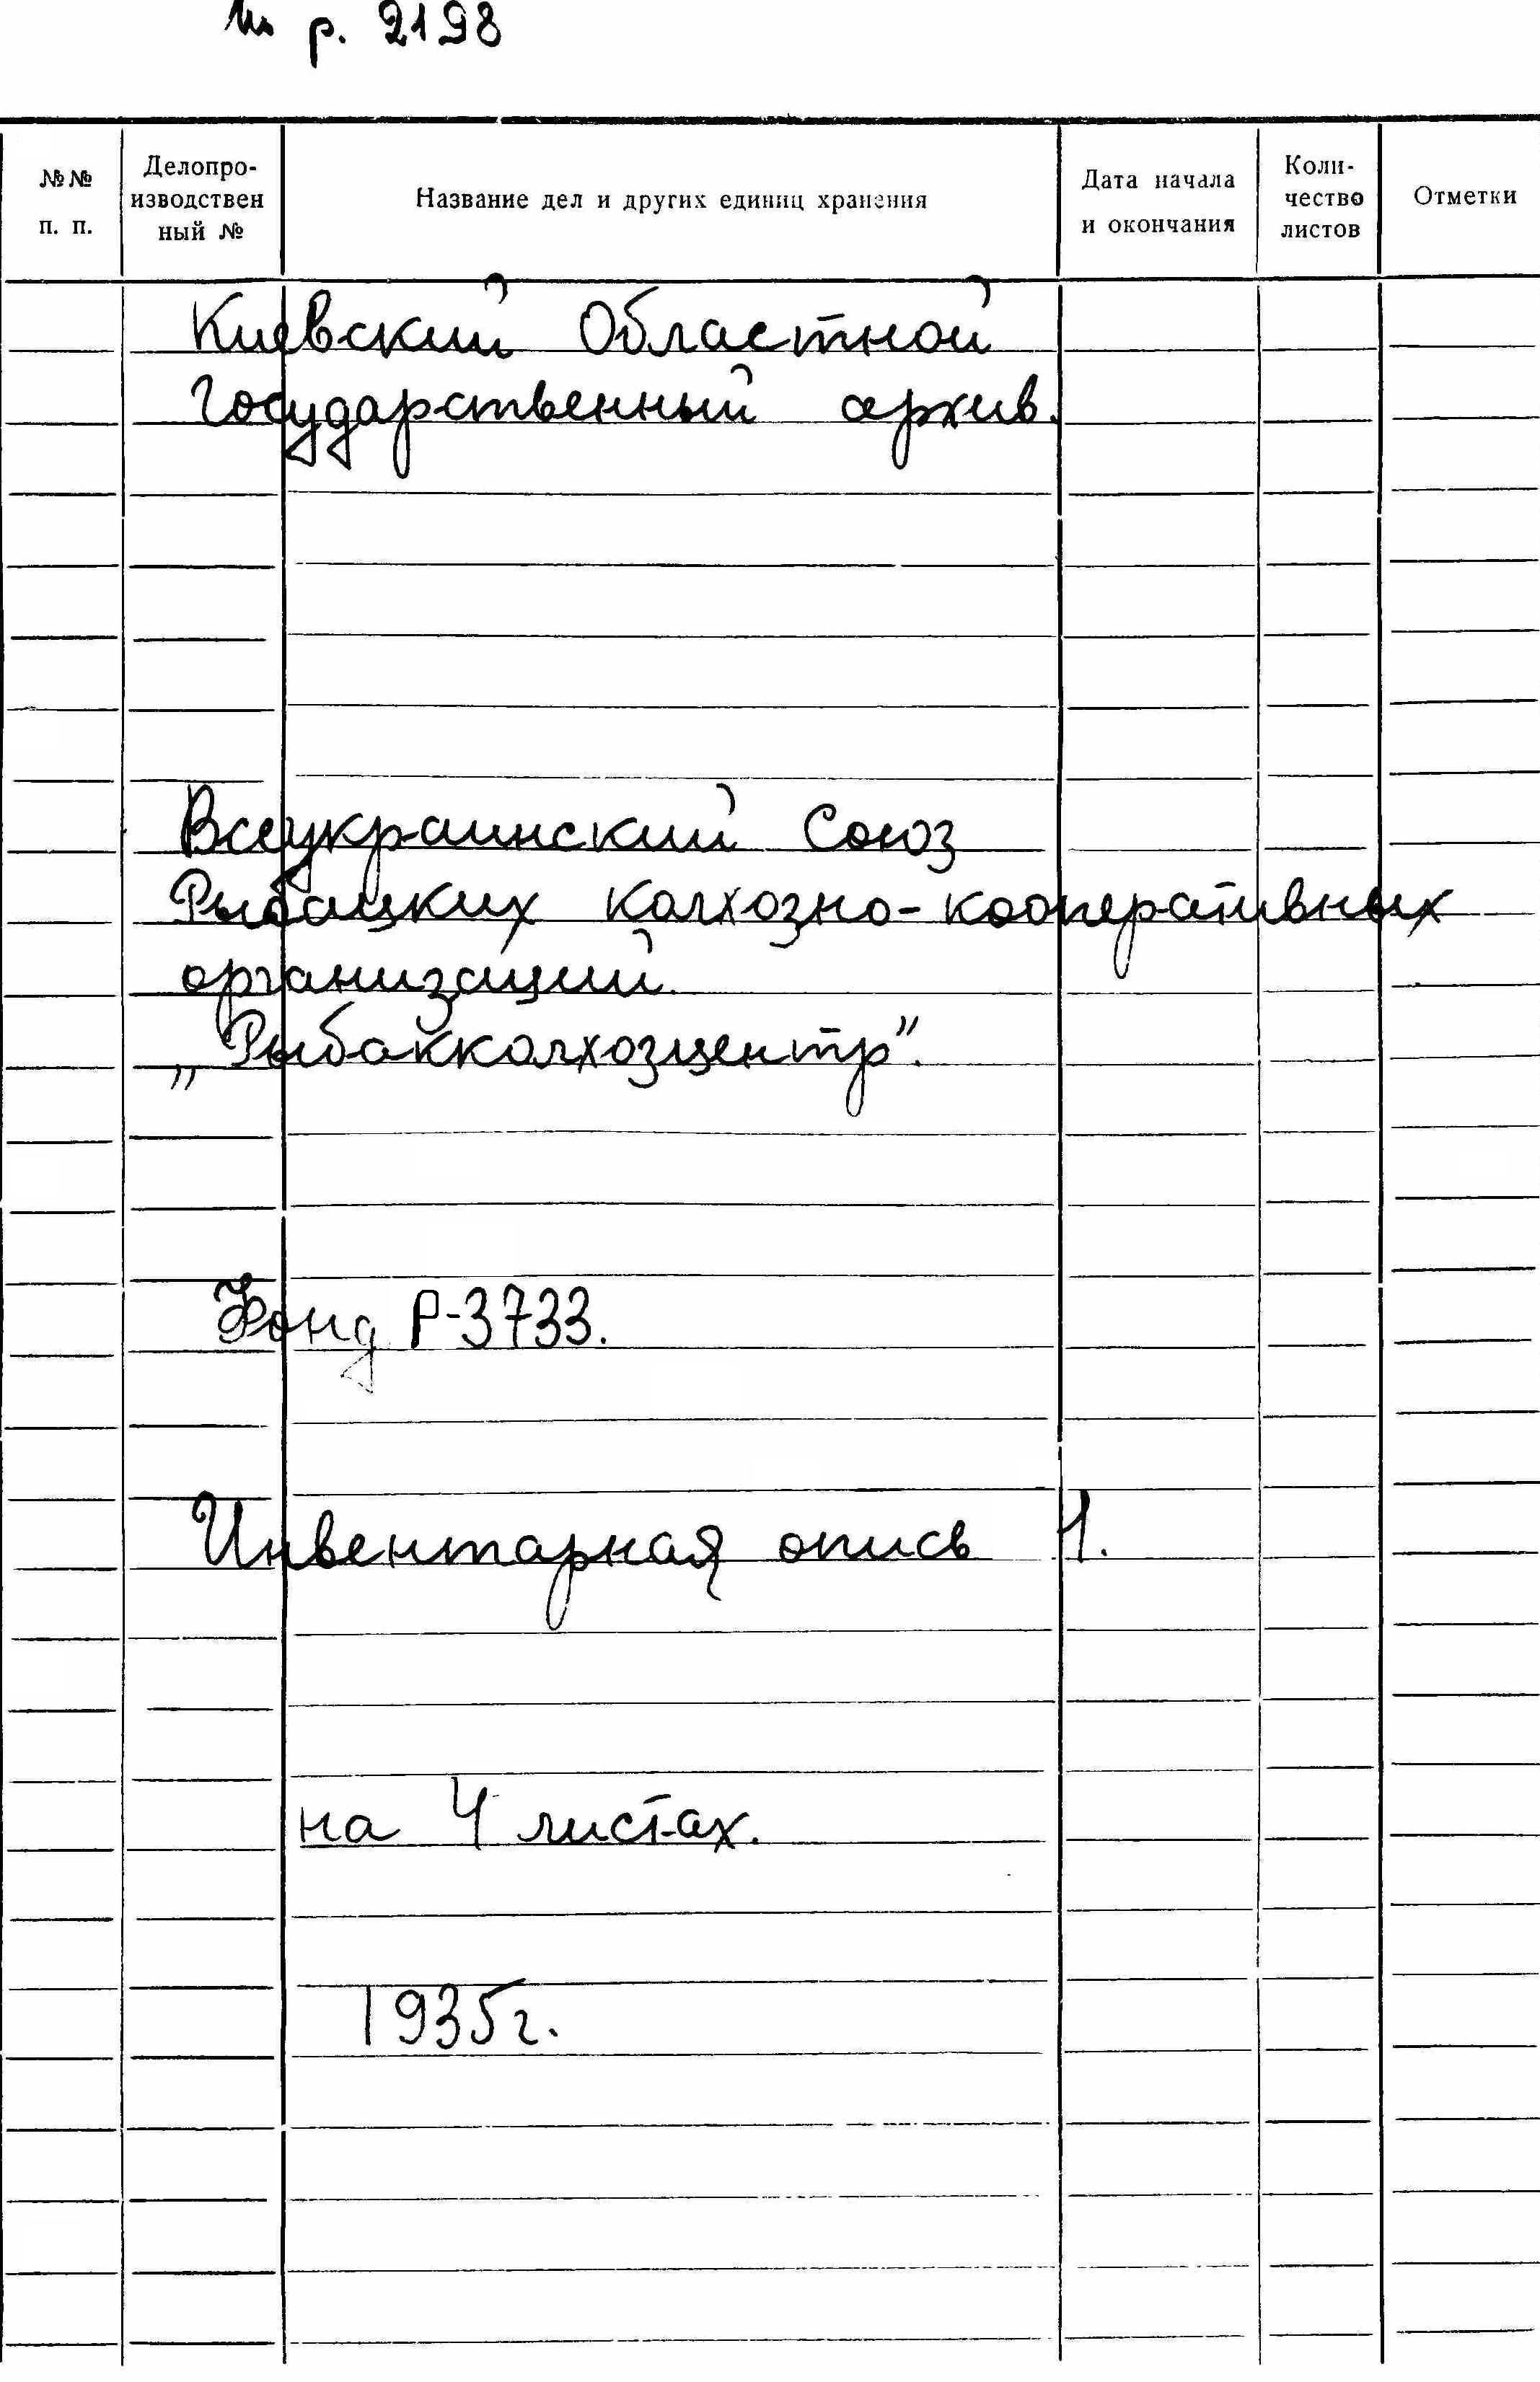 р. 2198
№№ п. п.
Делопро-
изводствен
ный №
Название дел и других единиц хранения
Дата начала
и окончания
Коли-
чество
листов
Отметки
Киевский Областной
Государственный архив.
Всеукраинский Союз
Рыбацких колхозно-кооперативных
организаций.
„Рыбакколхозцентр".
Фонд Р-3733.
Инвентарная опись 1.
на 4 листах.
1935г.